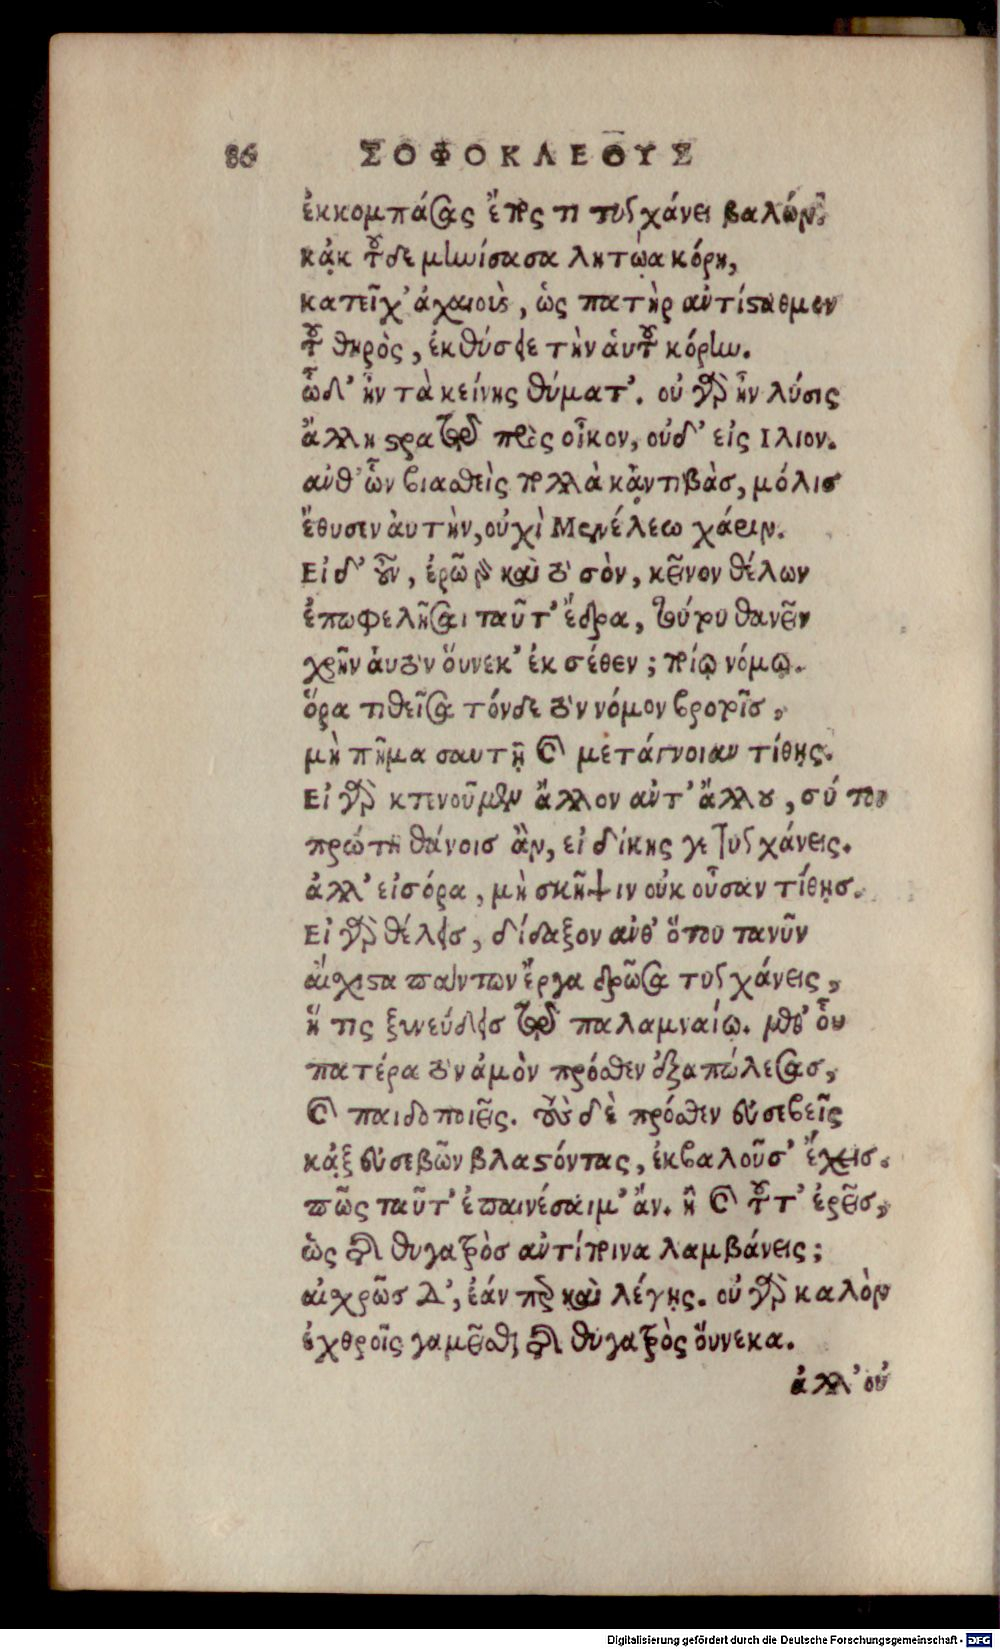 86 ΣΟΦΟΚΛΕΟΥΣ
ἐκκομπάσας ἔπος τι τυγχάνει βαλών.
κᾀκ τοῦδε μηνίσασα λητῴα κόρη,
κατεῖχ' ἀχαιοὺς, ὡς πατὴρ ἀντίσταθμον
τοῦ θηρὸς, ἐκθύσειε τὴν αὑτοῦ κόρην.
ὧδ' ἦν τὰ κείνης θύματ'. οὐ γὰρ ἦν λύσις
ἄλλη στρατῷ πρὸς οἶκον, οὐδ' εἰς Ιλιον.
ἀνθ' ὧν βιασθεὶς πολλὰ κᾀντιβὰσ, μόλισ
ἔθυσεν ἀυτὴν, οὐχὶ Μενέλεω χάριν.
Εἰ δ' οὖν, ἐρῶ γὰρ καὶ τὸ σὸν, κεῖνον θέλων
ἐπωφελῆσαι ταῦτ' ἔδρα, τούτου θανεῖν
χρῆν ἀυτὸν ὅυνεκ' ἐκ σέθεν; ποίῳ νόμῳ.
ὅρα τιθεῖσα τόνδε τὸν νόμον βροτοῖσ,
μὴ πῆμα σαυτῇ καὶ μετάγνοιαν τίθης.
Εἰ γὰρ κτενοῦμεν ἄλλον ἀντ' ἄλλου, σύ τοι
πρώτη θάνοισ ἂν, εἰ δίκης γε τυγχάνεις.
ἀλλ' εἰσόρα, μὴ σκῆψιν οὐκ οὖσαν τίθησ.
Εἰ γὰρ θέλεισ, δίδαξον ἀνθ' ὅτου τανῦν
αἴσχιστα πάντων ἔργα δρῶσα τυγχάνεις,
ἥ τις ξυνεύδεισ τῷ παλαμναίῳ. μεθ' οὗ
πατέρα τὸν ἁμὸν πρόσθεν ἐξαπώλεσασ,
καὶ παιδοποιεῖς. τοὺς δὲ πρόσθεν εὐσεβεῖς
κᾀξ εὐσεβῶν βλαστόντας, ἐκβαλοῦσ' ἔχεισ.
πῶς ταῦτ' ἐπαινέσαιμ' ἄν. ἢ καὶ τοῦτ' ἐρεῖσ,
ὡς τῆς θυγατρὸσ ἀντίποινα λαμβάνεις;
αἰσχρῶσ δ', ἐάν περ καὶ λέγῃς. οὐ γὰρ καλὸν
ἐχθροῖς γαμεῖσθαι τῆς θυγατρὸς ὅυνεκα.
ἀλλ' οὐ
Digitalisierung gefördert durch die Deutsche Forschungsgemeinschaft - DFG